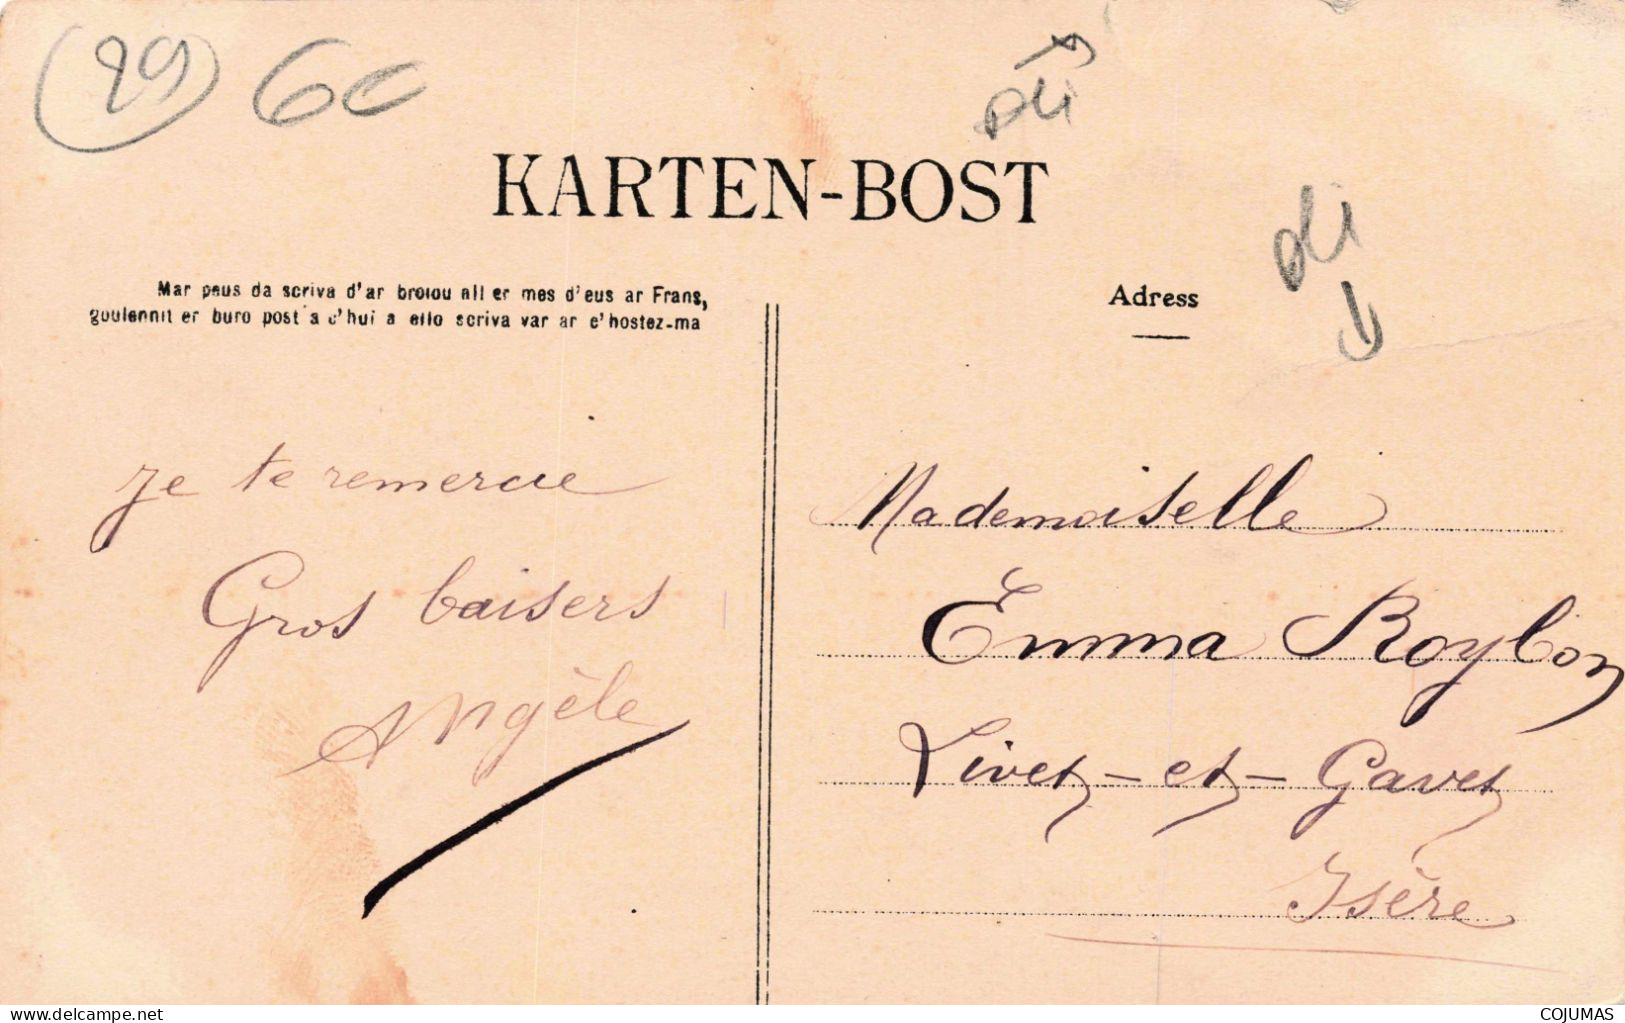 (29) 6€
KARTEN-BOST
Mar peus da scriva d'ar broiou all er mes d'eus ar Frans,
goulennit er buro post a c'hui a ello scriva var ar c'hostez-ma
Adress
Je te remercie
Gros baisers
Angèle
Mademoiselle
Emma Roylbon
Livet-et-Gavet
Isère
www.delcampe.net
COJUMAS